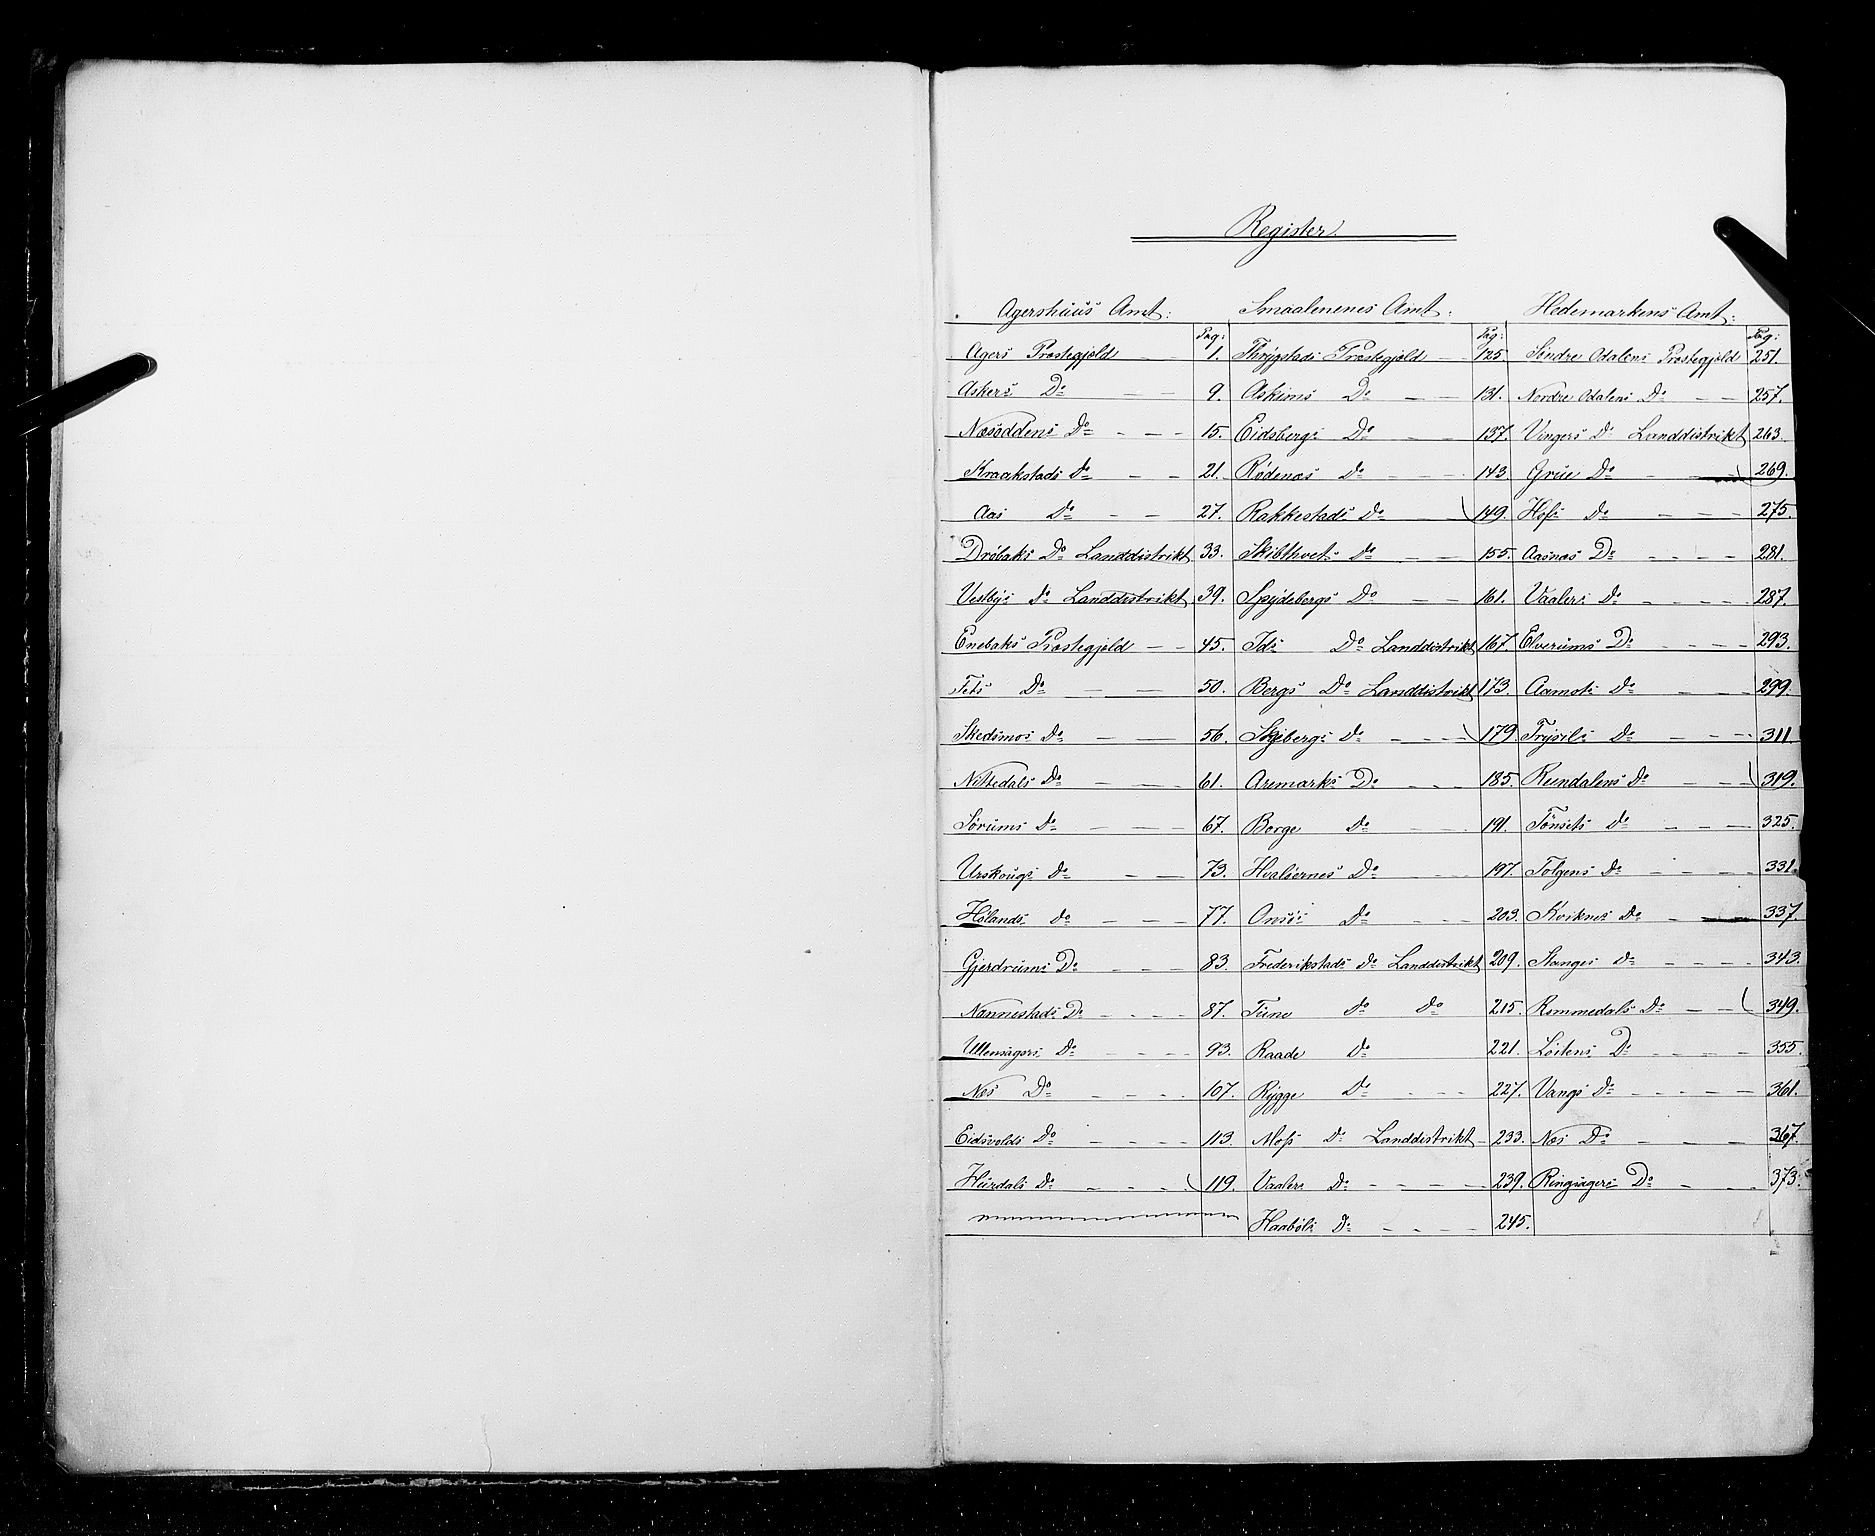 Register.
Agershuus Amt: Smaalenenes Amt: Hedemarkens Amt:
Pag: Pag: Pag:
Agers Præstegjæld 1. Thrygstads Præstegjæld 125. Søndre Odalens Præstegjæld 251.
Askers Do 9. Askims Do 131. Nordre Odalens Do 257.
Næsoddens Do 15. Eidsbergs Do 137. Vingers Do Landdistrikt 263.
Kraakstads Do 21. Rødenæs Do 143. Grue Do 269.
Aas Do 27. Rakkestads Do 149. Hofs Do 275.
Drøbaks Do Landdistrikt 33. Skibthvets Do 155. Aasnæs Do 281.
Vestbys Do Landdistrikt 39. Spydebergs Do 161. Vaalers Do 287.
Enebaks Præstegjæld 45. Ids Do Landdistrikt 167. Elverums Do 293.
Fets Do 50. Bergs Do Landdistrikt 173. Aamots Do 299.
Skedsmos Do 56. Skjebergs Do 179. Trysils Do 311.
Nittedals Do 61. Aremarks Do 185. Rendalens Do 319.
Sørums Do 67. Borge Do 191. Tønsets Do 325.
Urskougs Do 73. Hvaløernes Do 197. Tolgens Do 331.
Hølands Do 77. Onsøs Do 203. Kviknes Do 337.
Gjerdrums Do 83. Frederikstads Do Landdistrikt 209. Stanges Do 343.
Nannestads Do 87. Tune Do Do 215. Rommedals Do 349.
Ullensagers Do 93. Raade Do 221. Løitens Do 355.
Næs Do 107. Rygge Do 227. Vangs Do 361.
Eidsvolds Do 113. Moss Do Landdistrikt 233. Næs Do 367.
Hurdals Do 119. Vaalers Do 239. Ringsagers Do 373.
Haabøls Do 245.